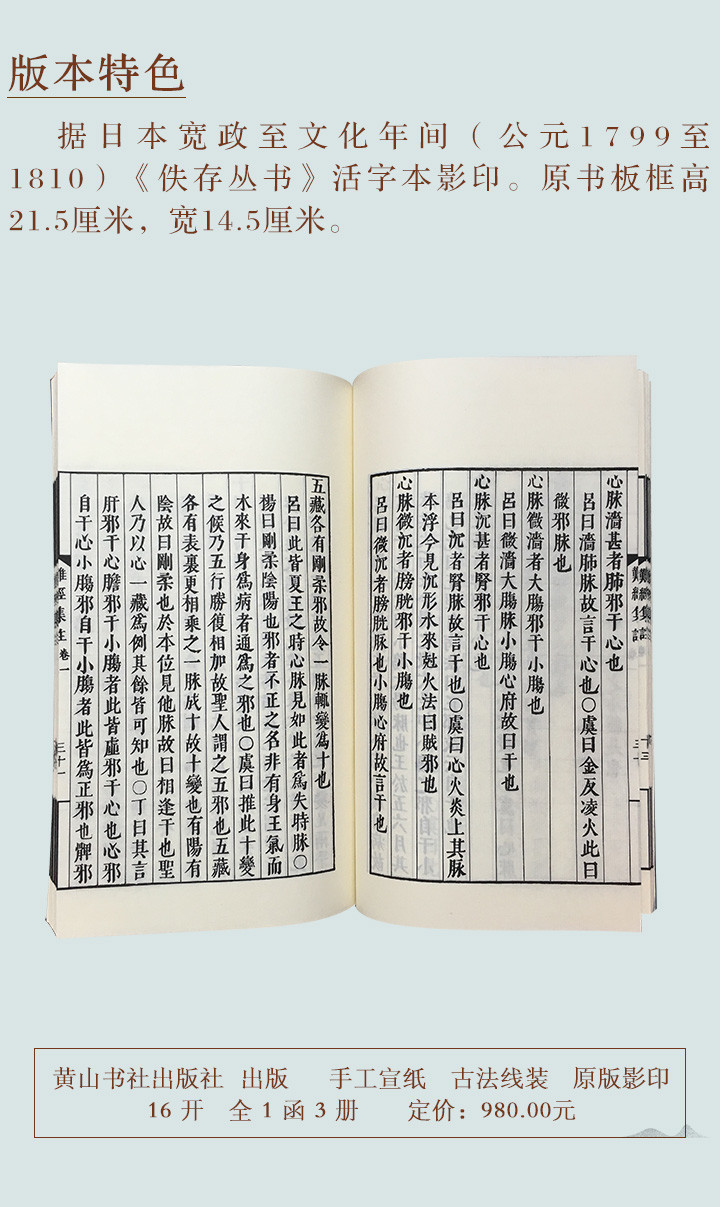 版本特色
据日本宽政至文化年间（公元1799至
1810）《佚存丛书》活字本影印。原书板框高
21.5厘米，宽14.5厘米。
心脉濇甚者肺邪干心也
呂曰濇肺脉故言干心也○虞曰金反凌火此曰
微邪脉也
心脉微濇者大膓邪干小膓也
呂曰微濇大膓脉小膓心府故曰干也
心脉沉甚者腎邪干心也
呂曰沉者腎脉故言干也○虞曰心火炎上其脉
本浮今見沉形水來尅火法曰賊邪也
心脉微沉者膀胱邪干小膓也
呂曰微沉者膀胱脉也小膓心府故言干也
五藏各有剛柔邪故令一脉輒變為十也
呂曰此皆夏王之時心脉見如此者為失時脉○
楊曰剛柔陰陽也邪者不正之名非有身王氣而
水來干身為病者通為之邪也○虞曰推此十變
之候乃五行勝復相加故聖人謂之五邪也五藏
各有表裏更相乘之一脉成十故十變也有陽有
陰故曰剛柔也於本位見他脉故曰相逢干也聖
人乃以心一藏為例其餘皆可知也○丁曰其言
肝邪干心膽邪干小膓者此皆虛邪干心也心邪
自干心小膓邪自干小膓者此皆為正邪也脾邪
難經集注 卷一
三十一
黄山书社出版社 出版 手工宣纸 古法线装 原版影印
16 开 全 1 函 3 册 定价：980.00元